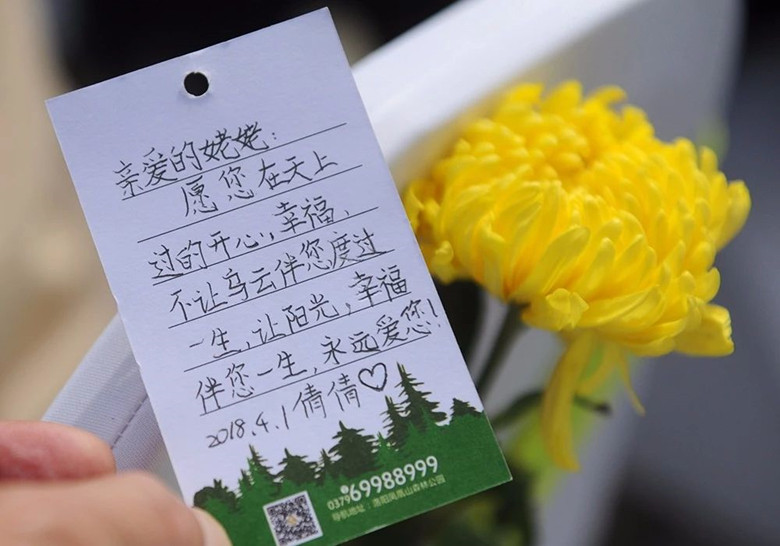 亲爱的姥姥:
愿您在天上
过的开心,幸福、
不让乌云伴您度过
一生,让阳光,幸福
伴您一生,永远爱您!
2018.4.1 倩倩♡
0379 69988999
导航地址:洛阳凤凰山森林公园